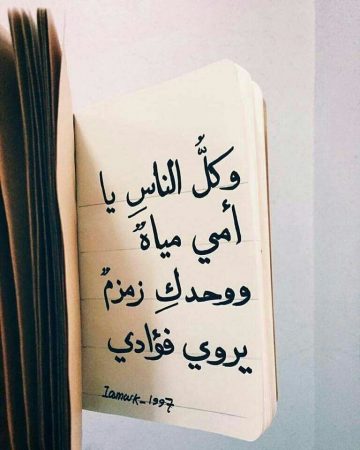 وكلُّ الناسِ يا
أمي مياهٌ
ووحدكِ زمزمٌ
يروي فؤادي
Iamark_1997